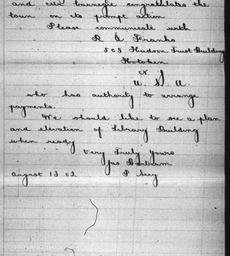 and Mr Carnegie congratulates the
town on its prompt action
Please communicate with
R A Franks
Hudson Trust Building
Hoboken
N.J.
U.S.A.
who has authority to arrange
payments.
We should like to see a plan
and elevation of Library Building
when ready
Very Truly Yours
Jas Bertram
P Secy
August 13 02